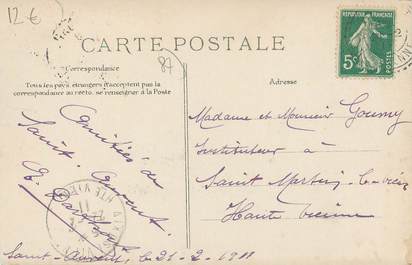 12 €
CARTE POSTALE
87
RÉPUBLIQUE FRANÇAISE
5c
POSTES
Correspondance
Tous les pays étrangers n'acceptent pas la
correspondance au recto, se renseigner à la Poste
Adresse
Amitiés de
Saint-Laurent.
Madame et Monsieur Goumy
Instituteur à
Saint Martin le-vieux
Haute Vienne
Saint-Laurent, le 21-2-1911